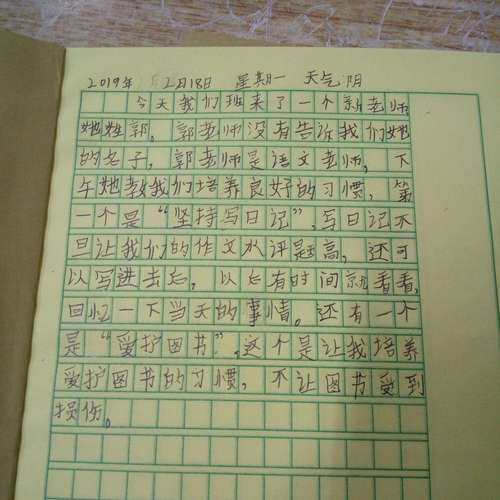 2019年2月18日 星期一 天气阴
今天我们班来了一个新老师
她姓郭。郭老师没有告诉我们她
的名子，郭老师是语文老师，下
午她教我们培养良好的习惯，第
一个是“坚持写日记”，写日记不
旦让我们的作文水评题高，还可
以写进去后，以后有时间就看看，
回忆一下当天的事情。还有一个
是“爱护图书”，这个是让我培养
爱护图书的习惯，不让图书受到
损伤。